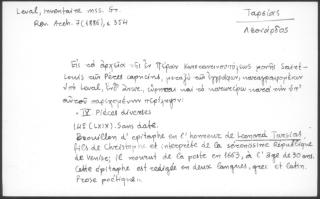 Laval, inventaire mss. Gr.
Rev. Arch. 7 (1886), σ 354
Ταρσίας
Λεονάρδος
Εἰς τὰ ἀρχεῖα τῆς ἐν Πέραν Κωνσταντινουπόλεως μονῆς Saint-
Louis τῶν Pères capucins, μεταξὺ τῶν ἐγγράφων, καταγραφομένων
ὑπὸ Laval, ὑπὸ
αὐτοῦ παρεχομένην περίληψιν:
"IV Pièces diverses
148 (LXIX). Sans date.
Brouillon d'épitaphe en l'honneur de Leonard Tarsias,
fils de Christophe et interprète de la sérénissime République
de Venise; il mourut de la peste en 1663, à l'âge de 30 ans.
Cette épitaphe est redigée en deux langues, grec et latin.
Prose poétique".